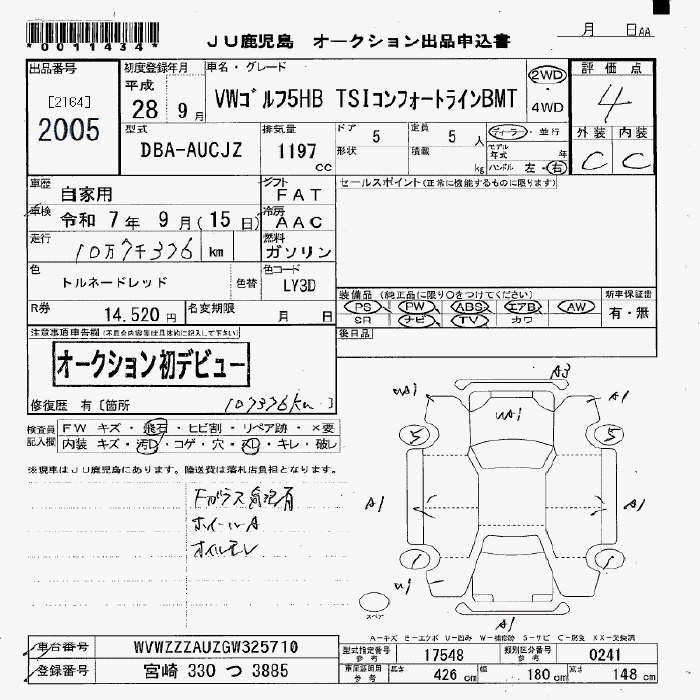 *0011434*
JU鹿児島 オークション出品申込書
月 日AA
出品番号
[2164]
2005
初度登録年月
平成
28 9月
車名・グレード
VWゴルフ5HB TSIコンフォートラインBMT
2WD
・
4WD
評価点
4
外装 内装
C C
型式
DBA-AUCJZ
排気量
1197
cc
ドア 5
形状
定員 5 人
積載 kg
ディーラ・並行
モデル年式 年
ハンドル 左・右
車歴
自家用
シフト
FAT
セールスポイント(正常に機能するものに限ります)
車検
令和 7年 9月(15日)
冷房
AAC
走行
10万7千376 km
燃料
ガソリン
色
トルネードレッド
色替
色コード
LY3D
R券
14,520円
名変期限
月 日
装備品(純正品に限り○をつけてください)
PS PW ABS エアB AW
SR ナビ TV カワ
新車保証書
有・無
後日品
注意事項申告欄(不具合内容等は具体的に記入して下さい)
オークション初デビュー
修復歴 有〔箇所 107376km 〕
検査員
記入欄
FW キズ・飛石・ヒビ割・リペア跡・×要
内装 キズ・汚レ・コゲ・穴・スレ・キレ・破レ
※現車はJU鹿児島にあります。陸送費は落札店負担となります。
Fガラス気泡有
ホイールA
オイルモレ
A3
UA1
UA1
A1
5
5
A1
A1
1
1
U1
A1
スペア
A-キズ E-エクボ U-凹み W-補修跡 S-サビ C-腐食 XX-交換済
車台番号
WVWZZZAUZGW325710
登録番号
宮崎 330 つ 3885
型式指定番号
参考
17548
類別区分番号
参考
0241
車庫証明用
参考
長さ 426 cm
幅 180 cm
高さ 148 cm